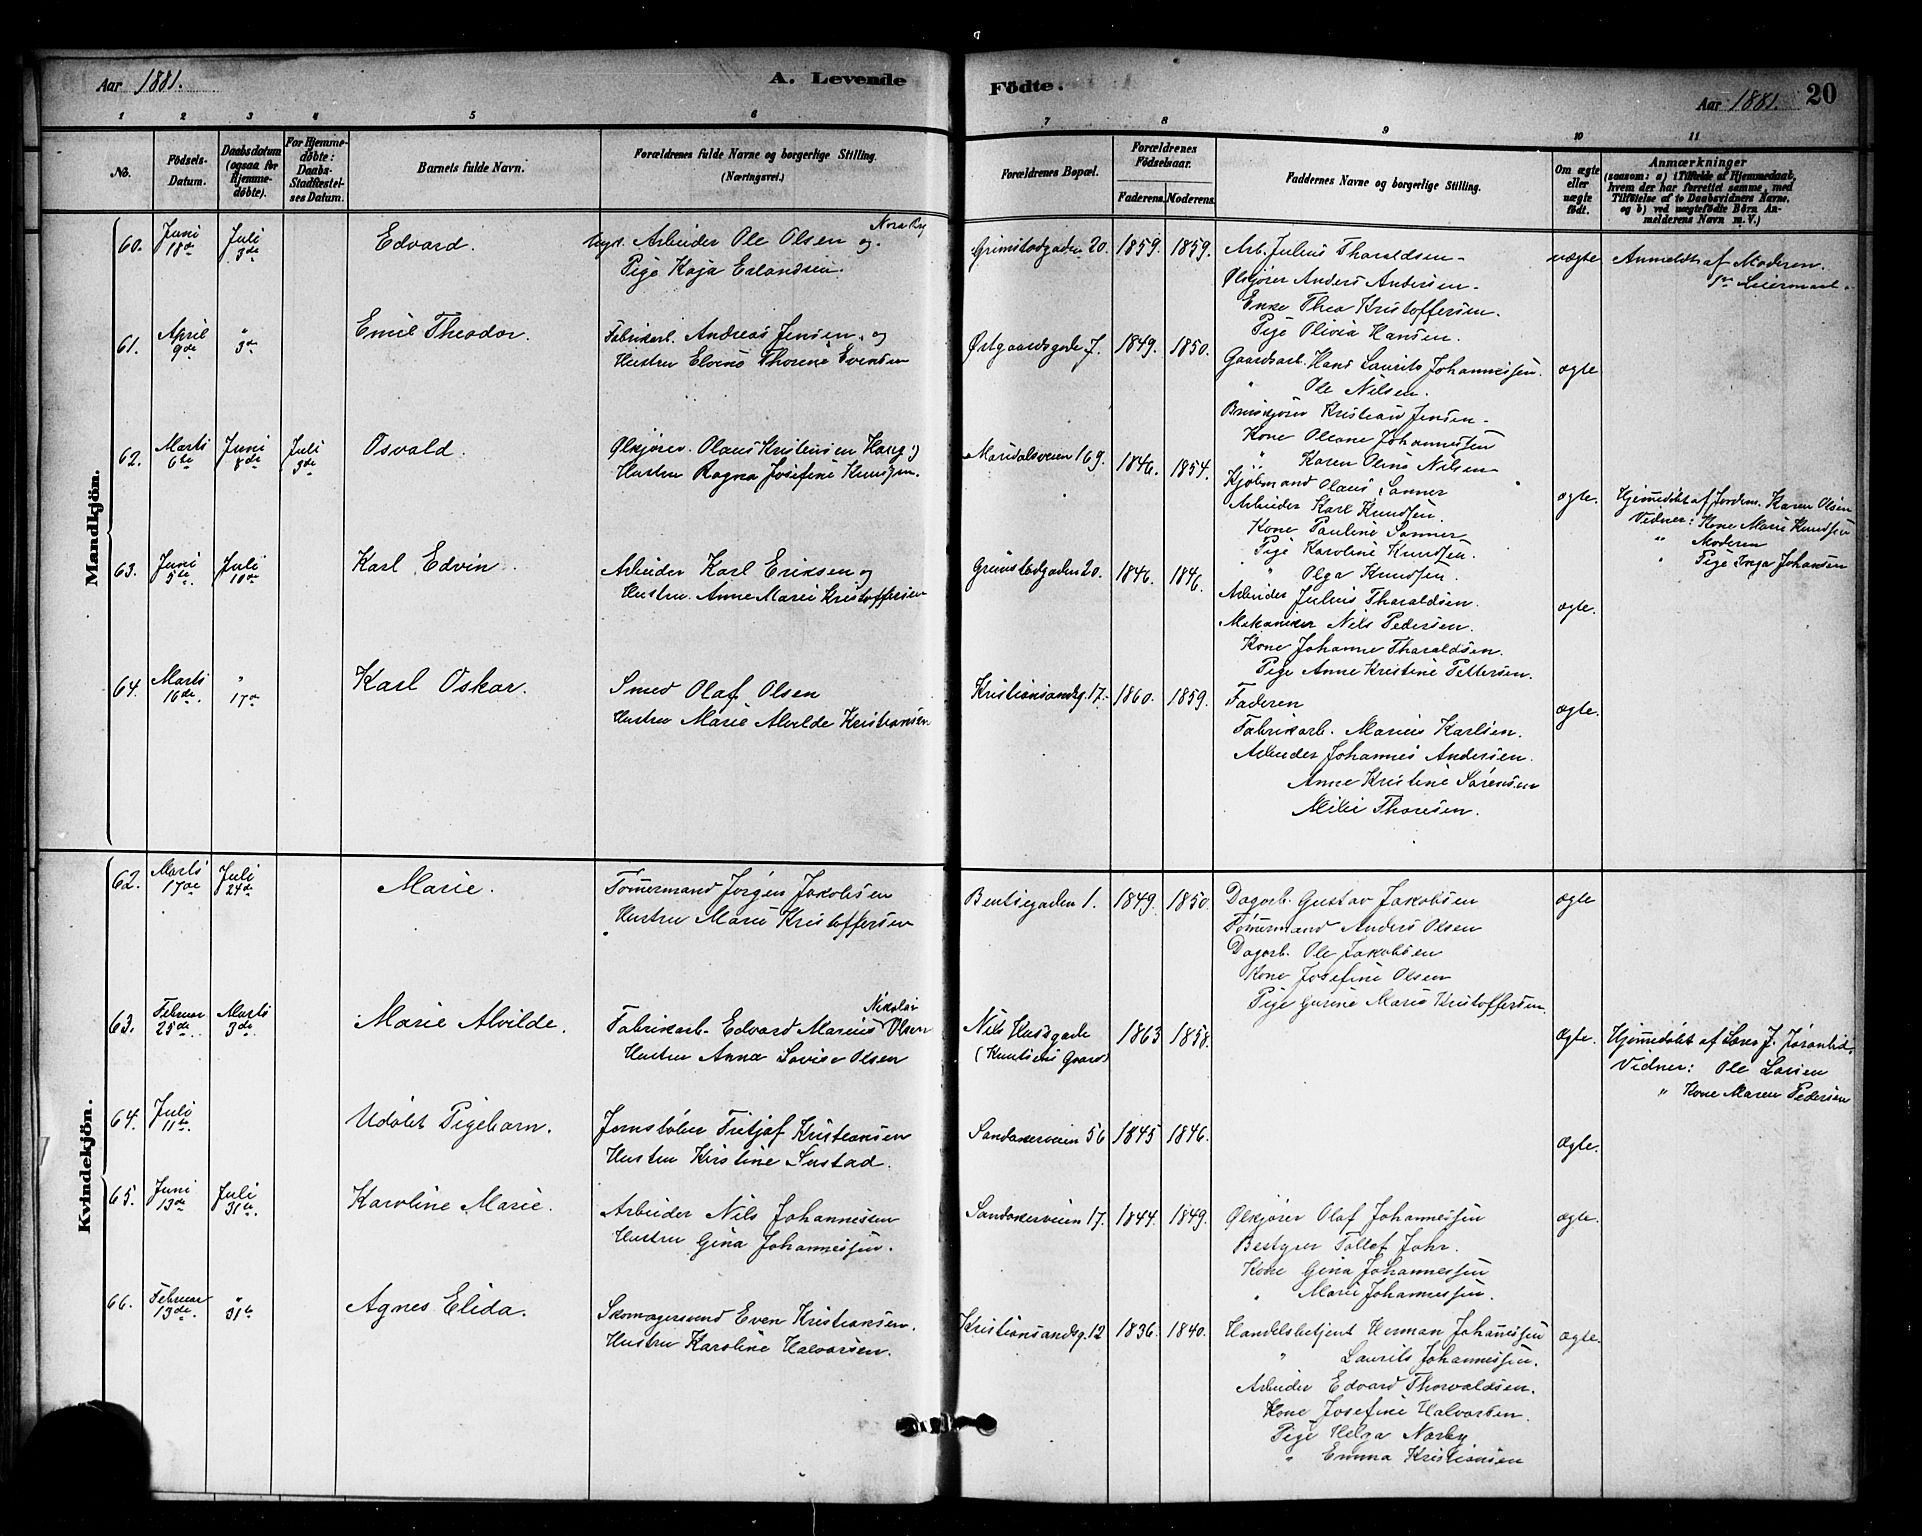 Aar 1881.
A. Levende
Födte.
Aar 1881. 20
1 2 3 4 5 6 7 8 9 10 11
No.
Födsels-
Datum.
Daabsdatum
(ogsaa for
Hjemme-
døbte).
For Hjemme-
døbte:
Daabs-
Stadfæstel-
ses Datum.
Barnets fulde Navn.
Forældrenes fulde Navne og borgerlige Stilling.
(Næringsvei.)
Forældrenes Bopæl.
Forældrenes
Födselsaar.
Faderens. Moderens.
Faddernes Navne og borgerlige Stilling.
Om ægte
eller
uægte
födt.
Anmærkninger
(saasom: a) i Tilfælde af Hjemmedaab,
hvem der har forrettet samme, med
Tilföielse af to Daabsvidners Navne,
og b) ved uægtefödte Börn An-
melderens Navn m. V.)
Mandkjön.
60. Juni 18de Juli 3de Edvard. Ugt. Arbeider Ole Olsen og
Pige Kaja Erlandsen.
Grimstadgaden 20. 1859. 1859.
Arb. Julius Tharaldsen
Ølkjører Anders Andersen
Enke Thea Kristoffersen.
Pige Olivia Hansen.
uægte Anmeldt af Moderen.
61. April 9de " 3de Emil Theodor. Fabrikarb. Andreas Jensen, og
Hustru Thorine Evensen
Østgaardsgade 7. 1849. 1850.
Gaardsarb. Hans Laurits Johannessen.
" Ole Nilsen.
Kristian Jensen
Kone Oleane Johannessen
" Karen Nilsen
ægte
62. Marts 6te Juni 8de Juli 3de Osvald. Ølkjører. Olaus Kristensen Haug
Hustru Ragna Josefine Knudsen.
Maridalsveien 169. 1846. 1854.
Kjøbmand Olaus Sanner
Arbeider Karl Knudsen.
Kone Pauline Sanner
Pige Karoline Knudsen.
" Olga Knudsen.
ægte. Hjemmedøbt af Jordem. Karen Olsen
Vidner: Kone Marie Knudsen
" Moderen
" Pige Inga Johansen
63. Juni 5te Juli 10de Karl Edvin Arbeider Karl Eriksen og
Hustru. Anne Marie Kristoffersen
Grimstadgaden 20. 1846. 1846.
Arbeider Julius Tharaldsen.
Mekaniker Nils Pedersen.
Kone Johanne Tharaldsen.
Pige Anne Kristine Pettersen.
ægte.
64. Marts 16de " 17de Karl Oskar. Smed Olaf Olsen
Hustru Marie Alvilde Kristiansen
Kristiansandsg. 17. 1860. 1859.
Faderen
Fabrikarb. Marius Karlsen.
Arbeider Johannes Andersen.
Anne Kristine Sørensen
Milli Thoresen.
ægte.
Kvindekjön.
62. Marts 17de Juli 24de Marie. Tømmermand Jørgen Jakobsen
Hustru Marie Kristoffersen
Bentsegaden 1. 1849. 1850.
Dagarb. Gustav Jakobsen
Tømmermand Anders Olsen
Dagarb. Ole Jakobsen
Kone Josefine Olsen
Pige Gurine Marie Kristoffersen
ægte
63. Februar 25de Marts 3de Marie Alvilde. Fabrikarb. Edvard Marius Nikolai Olsen
Hustru Anna Lovise Olsen
Nils Hussgade
(Knutsens Gaard)
1863 1858.
Ægte. Hjemmedøbt af Lærer J.
Vidner: Ole Larsen
" Kone Maren Pedersen
64. Juli 11te Udøbt Pigebarn. Jernstøber Fritjof Kristiansen
Hustru Kirstine Sustad.
Sandakerveien 56 1845 1846.
Ægte.
65. Juni 13de Juli 31te. Karoline Marie. Arbeider Nils Johannessen
Hustru Gina Johannessen.
Sandakerveien 17. 1844. 1849.
Ølkjører Olaf Johannessen
Bestyrer Tollef Johr.
Kone Gina Johannessen
" Marie Johannessen.
ægte.
66. Februar 13de. " 31te Agnes Elida. Skomagersvend Even Kristiansen.
Hustru Karoline Halvorsen.
Kristiansandsg. 12 1836. 1840.
Handelsbetjent Herman Johannessen
" Laurits Johannessen.
Arbeider Edvard Thorvaldsen.
Kone Josefine Halvorsen.
Pige Helga Nærby
" Emma Kristiansen
ægte.